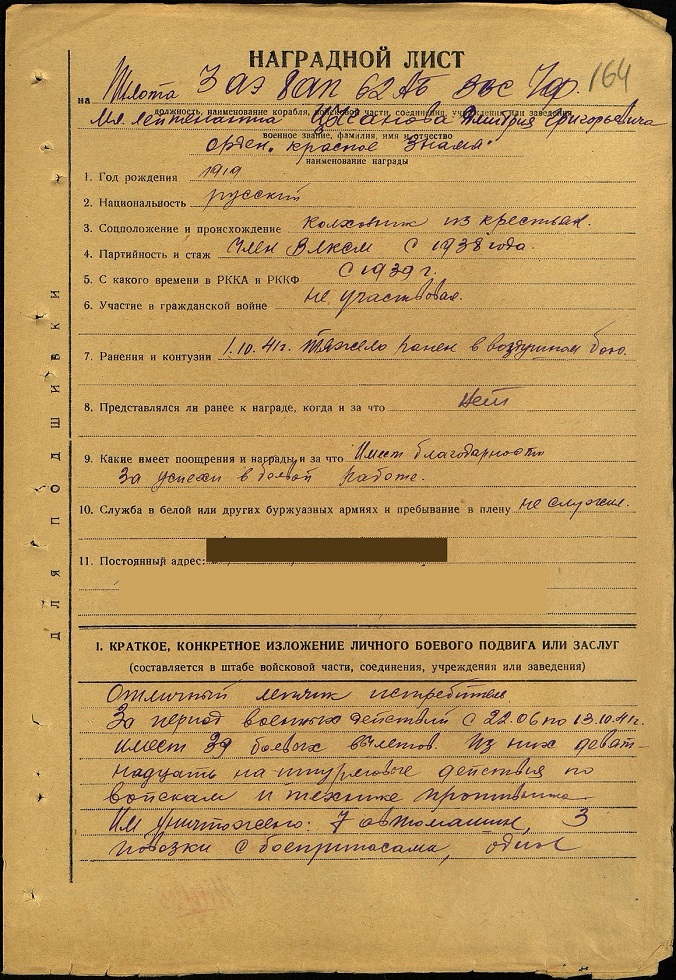 НАГРАДНОЙ ЛИСТ
164
на Пилота 3 АЭ 8 АП 62 АБ ВВС ЧФ.
должность, наименование корабля, войсковой части, соединения, учреждения или заведения
Мл. лейтенанта Цыганова Дмитрия Григорьевича
военное звание, фамилия, имя и отчество
Орден. Красное Знамя.
наименование награды
1. Год рождения 1919
2. Национальность русский
3. Соцположение и происхождение колхозник из крестьян.
4. Партийность и стаж Член ВЛКСМ с 1938 года.
5. С какого времени в РККА и РККФ с 1939 г.
6. Участие в гражданской войне не участвовал.
7. Ранения и контузии 1.10.41г. тяжело ранен в воздушном бою.
8. Представлялся ли ранее к награде, когда и за что нет
9. Какие имеет поощрения и награды и за что Имеет благодарности
за успехи в боевой работе.
10. Служба в белой или других буржуазных армиях и пребывание в плену не служил.
11. Постоянный адрес:
ДЛЯ ПОДШИВКИ
1. КРАТКОЕ, КОНКРЕТНОЕ ИЗЛОЖЕНИЕ ЛИЧНОГО БОЕВОГО ПОДВИГА ИЛИ ЗАСЛУГ
(составляется в штабе войсковой части, соединения, учреждения или заведения)
Отличный летчик истребитель
За период военных действий с 22.06 по 13.10.41г.
имеет 39 боевых вылетов. Из них девят-
надцать на штурмовые действия по
войскам и технике противника
Им уничтожено: 7 автомашин, 3
повозки с боеприпасами, одно